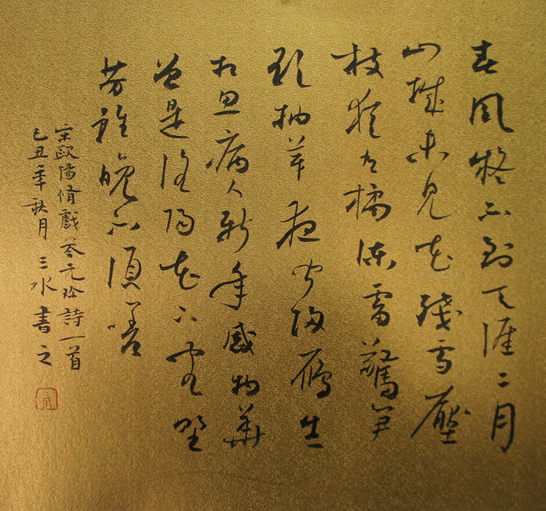 春風疑不到天涯二月
山城未見花殘雪壓
枝猶有橘凍雷驚笋
欲抽芽夜聞歸雁生
鄉思病入新年感物華
曾是洛陽花下客野
芳雖晚不須嗟
宋歐陽脩戲答元珍詩一首
己丑年秋月三水書之